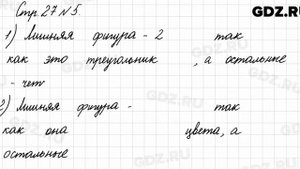 GDZ.RU
Стр. 27 № 5.
1) Лишняя фигура - 2 так
как это треугольник , а остальные
- чет
2) Лишняя фигура - так
как она цвета, а
остальные